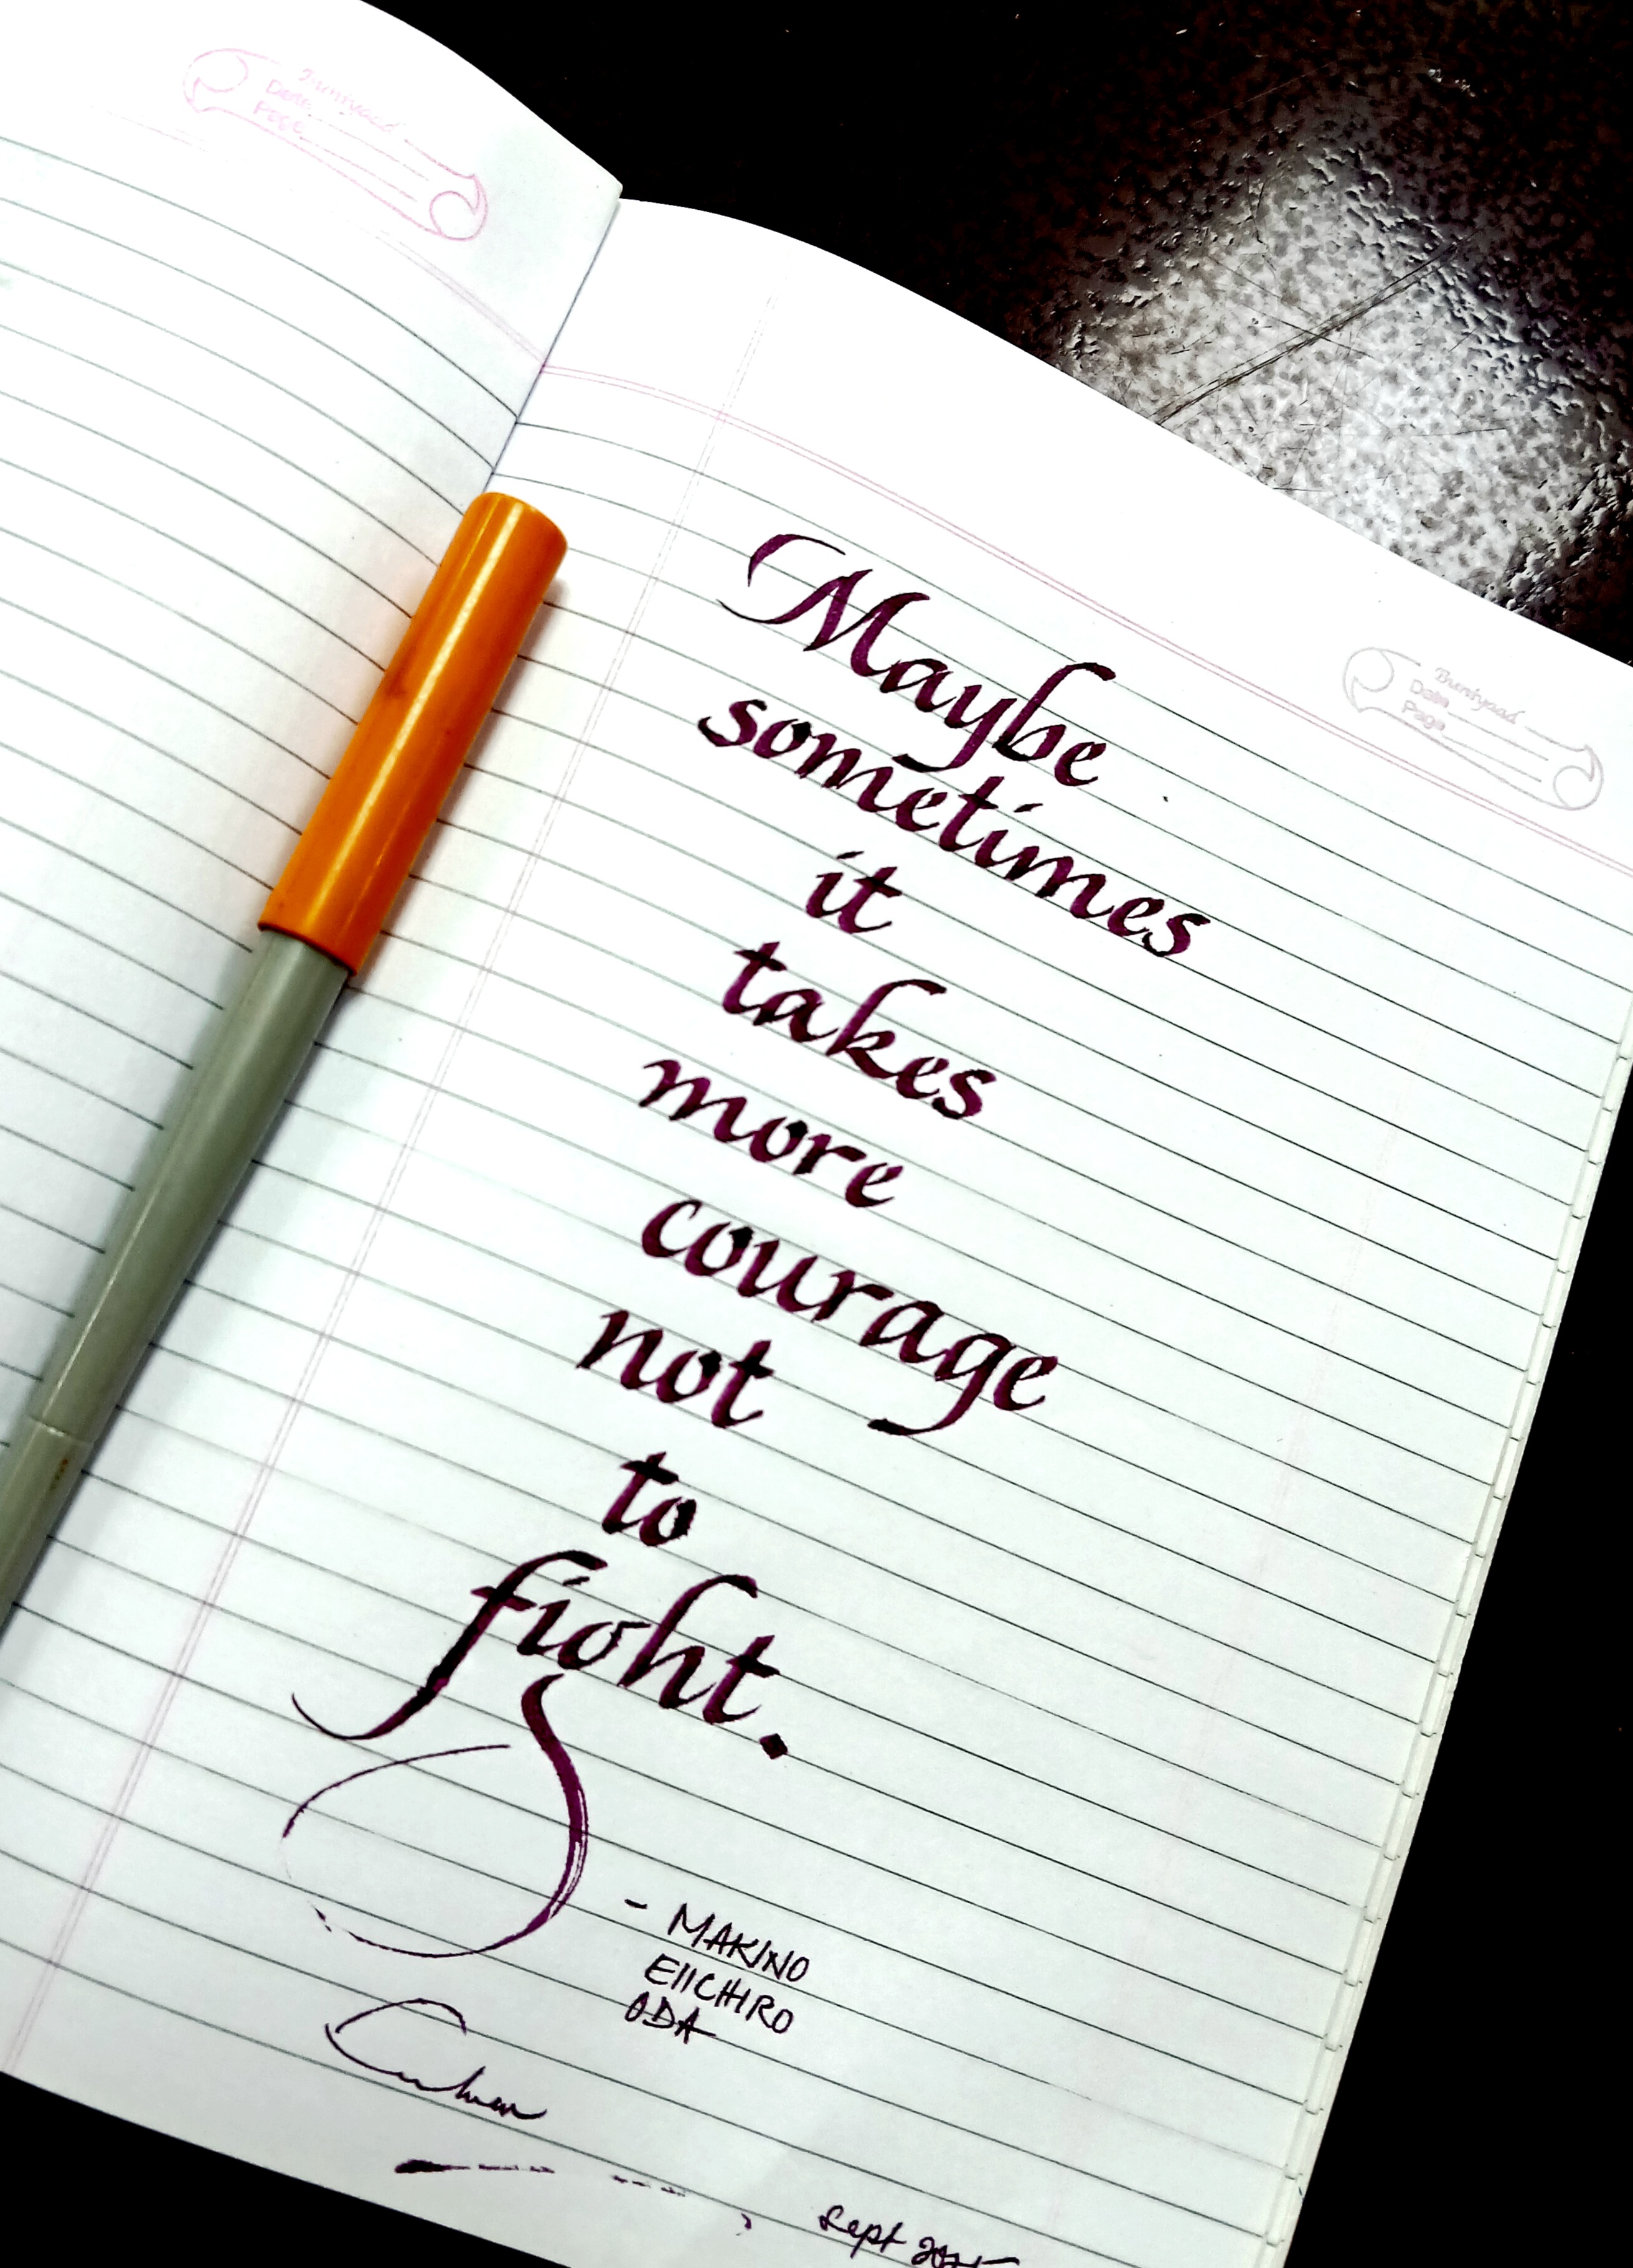 Buniyaad
Date
Page
Buniyaad
Date
Page
Maybe
sometimes
it
takes
more
courage
not
to
fight.
- MAKINO
EIICHIRO
ODA
Sept 2025